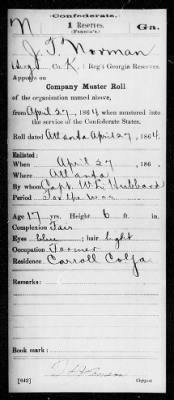 Confederate.
N 1 Reserves, Ga.
(Fannin's).
J. T. Norman
Co. K, 1 Reg't Georgia Reserves.
Appears on
Company Muster Roll
of the organization named above,
from April 27, 1864 when mustered into
the service of the Confederate States.
Roll dated Atlanta April 27, 1864
Enlisted:
When April 27, 186
Where Atlanta
By whom Capt. W L Hubbard
Period For the war
Age 17 yrs. Height 6 ft. in.
Complexion Fair
Eyes blue; hair light
Occupation Farmer
Residence Carroll Co Ga
Remarks:
Book mark:
(642) Copyist.